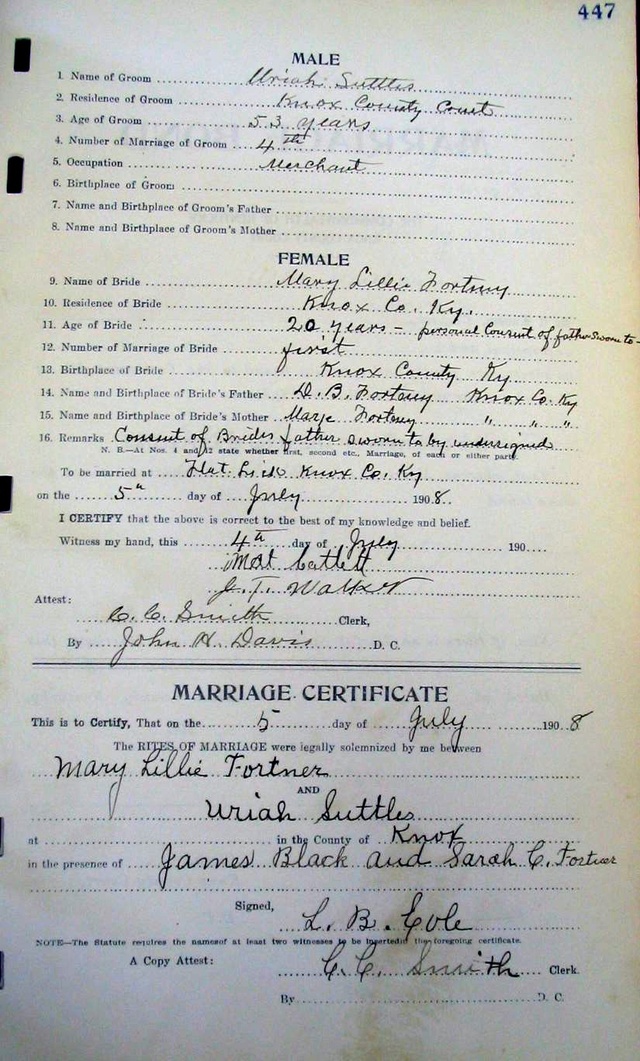 447
MALE
1. Name of Groom Uriah Suttles
2. Residence of Groom Knox County Court
3. Age of Groom 53 years
4. Number of Marriage of Groom 4th
5. Occupation Merchant
6. Birthplace of Groom
7. Name and Birthplace of Groom's Father
8. Name and Birthplace of Groom's Mother
FEMALE
9. Name of Bride Mary Lillie Fortney
10. Residence of Bride Knox Co. Ky.
11. Age of Bride 20 years – personal Consent of father sworn to –
12. Number of Marriage of Bride first
13. Birthplace of Bride Knox County Ky
14. Name and Birthplace of Bride's Father D. B. Fortney Knox Co. Ky
15. Name and Birthplace of Bride's Mother Fortney " " "
16. Remarks Consent of Brides father sworn to by undersigned
N. B.—At Nos. 4 and 12 state whether first, second etc., Marriage, of each or either party.
To be married at Flat Lick Knox Co. Ky
on the 5th day of July 1908.
I CERTIFY that the above is correct to the best of my knowledge and belief.
Witness my hand, this 4th day of July 190
Catlett
J. T. Walker
Attest:
C. C. Smith Clerk,
By John H. Davis D. C.
MARRIAGE CERTIFICATE
This is to Certify, That on the 5 day of July 1908
The RITES OF MARRIAGE were legally solemnized by me between
Mary Lillie Fortner
AND
Uriah Suttles
at in the County of Knox
in the presence of James Black and Sarah C. Fortner
Signed,
L. B. Cole
NOTE—The Statute requires the names of at least two witnesses to be inserted in the foregoing certificate.
A Copy Attest: C. C. Smith Clerk.
By D. C.